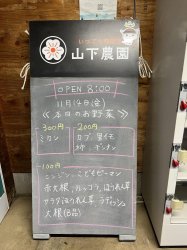 山下農園
OPEN 8:00
11月14日(金)
≪本日のお野菜≫
300円 200円
ミカン カブ 里イモ
柿 ギンナン
100円
ニンジン こどもピーマン
赤大根 ルッコラ ほうれん草
サラダほうれん草 ラディッシュ
大根(B品)